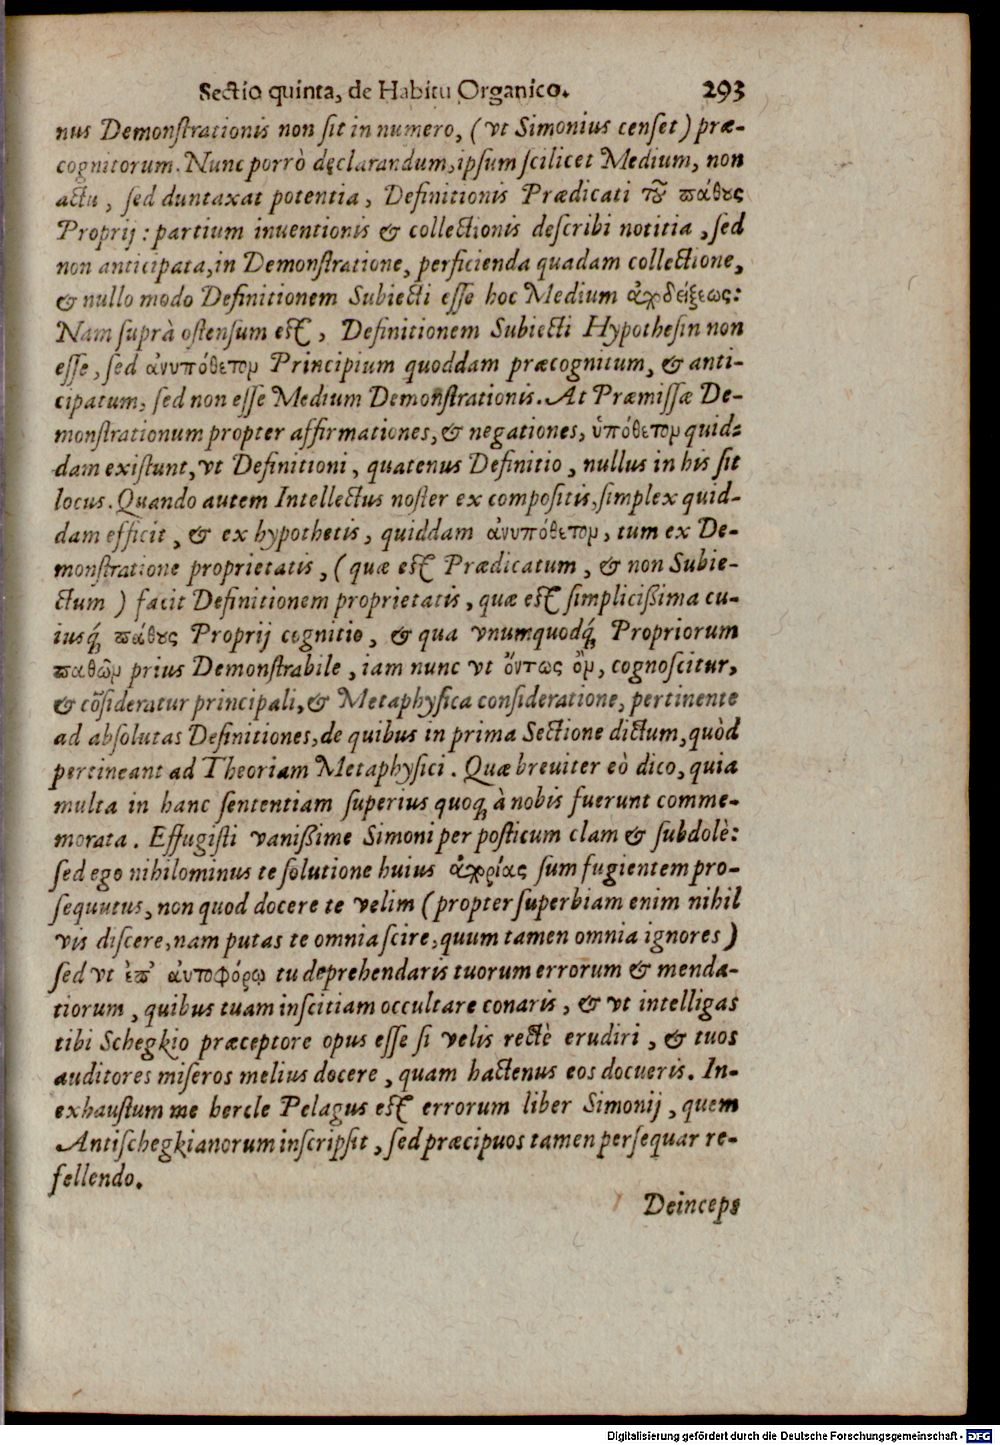 Sectio quinta, de Habitu Organico. 293
nus Demonſtrationis non ſit in numero, (vt Simonius cenſet) præ-
cognitorum. Nunc porrò dęclarandum, ipſum ſcilicet Medium, non
actu, ſed duntaxat potentia, Definitionis Prædicati τȣ͂ ϖάθȣς
Proprij: partium inuentionis & collectionis deſcribi notitia, ſed
non anticipata, in Demonſtratione, perficienda quadam collectione,
& nullo modo Definitionem Subiecti eſſe hoc Medium ἀποδείξεως:
Nam ſuprà oſtenſum eſt, Definitionem Subiecti Hypotheſin non
eſſe, ſed ἀνυπόθετον Principium quoddam præcognitum, & anti-
cipatum, ſed non eſſe Medium Demonſtrationis. At Præmiſſæ De-
monſtrationum propter affirmationes, & negationes, ὑπόθετον quid-
dam exiſtunt, vt Definitioni, quatenus Definitio, nullus in his ſit
locus. Quando autem Intellectus noſter ex compoſitis, ſimplex quid-
dam efficit, & ex hypothetis, quiddam ἀνυπόθετον, tum ex De-
monſtratione proprietatis, (quæ eſt Prædicatum, & non Subie-
ctum) facit Definitionem proprietatis, quæ eſt ſimplicißima cu-
iusq́ ϖάθȣς Proprij cognitio, & qua vnumquodq́ Propriorum
ϖαθῶν prius Demonſtrabile, iam nunc vt ὄντως ὂν, cognoſcitur,
& cõſideratur principali, & Metaphyſica conſideratione, pertinente
ad abſolutas Definitiones, de quibus in prima Sectione dictum, quòd
pertineant ad Theoriam Metaphyſici. Quæ breuiter eò dico, quia
multa in hanc ſententiam ſuperius quoq; à nobis fuerunt comme-
morata. Effugiſti vanißime Simoni per poſticum clam & ſubdolè:
ſed ego nihilominus te ſolutione huius ἀπορίας ſum fugientem pro-
ſequutus, non quod docere te velim (propter ſuperbiam enim nihil
vis diſcere, nam putas te omnia ſcire, quum tamen omnia ignores)
ſed vt ἐϖ' ἀυτοφόρῳ tu deprehendaris tuorum errorum & menda-
tiorum, quibus tuam inſcitiam occultare conaris, & vt intelligas
tibi Schegkio præceptore opus eſſe ſi velis rectè erudiri, & tuos
auditores miſeros melius docere, quam hactenus eos docueris. In-
exhauſtum me hercle Pelagus eſt errorum liber Simonij, quem
Antiſchegkianorum inſcripſit, ſed præcipuos tamen perſequar re-
fellendo.
Deinceps
Digitalisierung gefördert durch die Deutsche Forschungsgemeinschaft - DFG